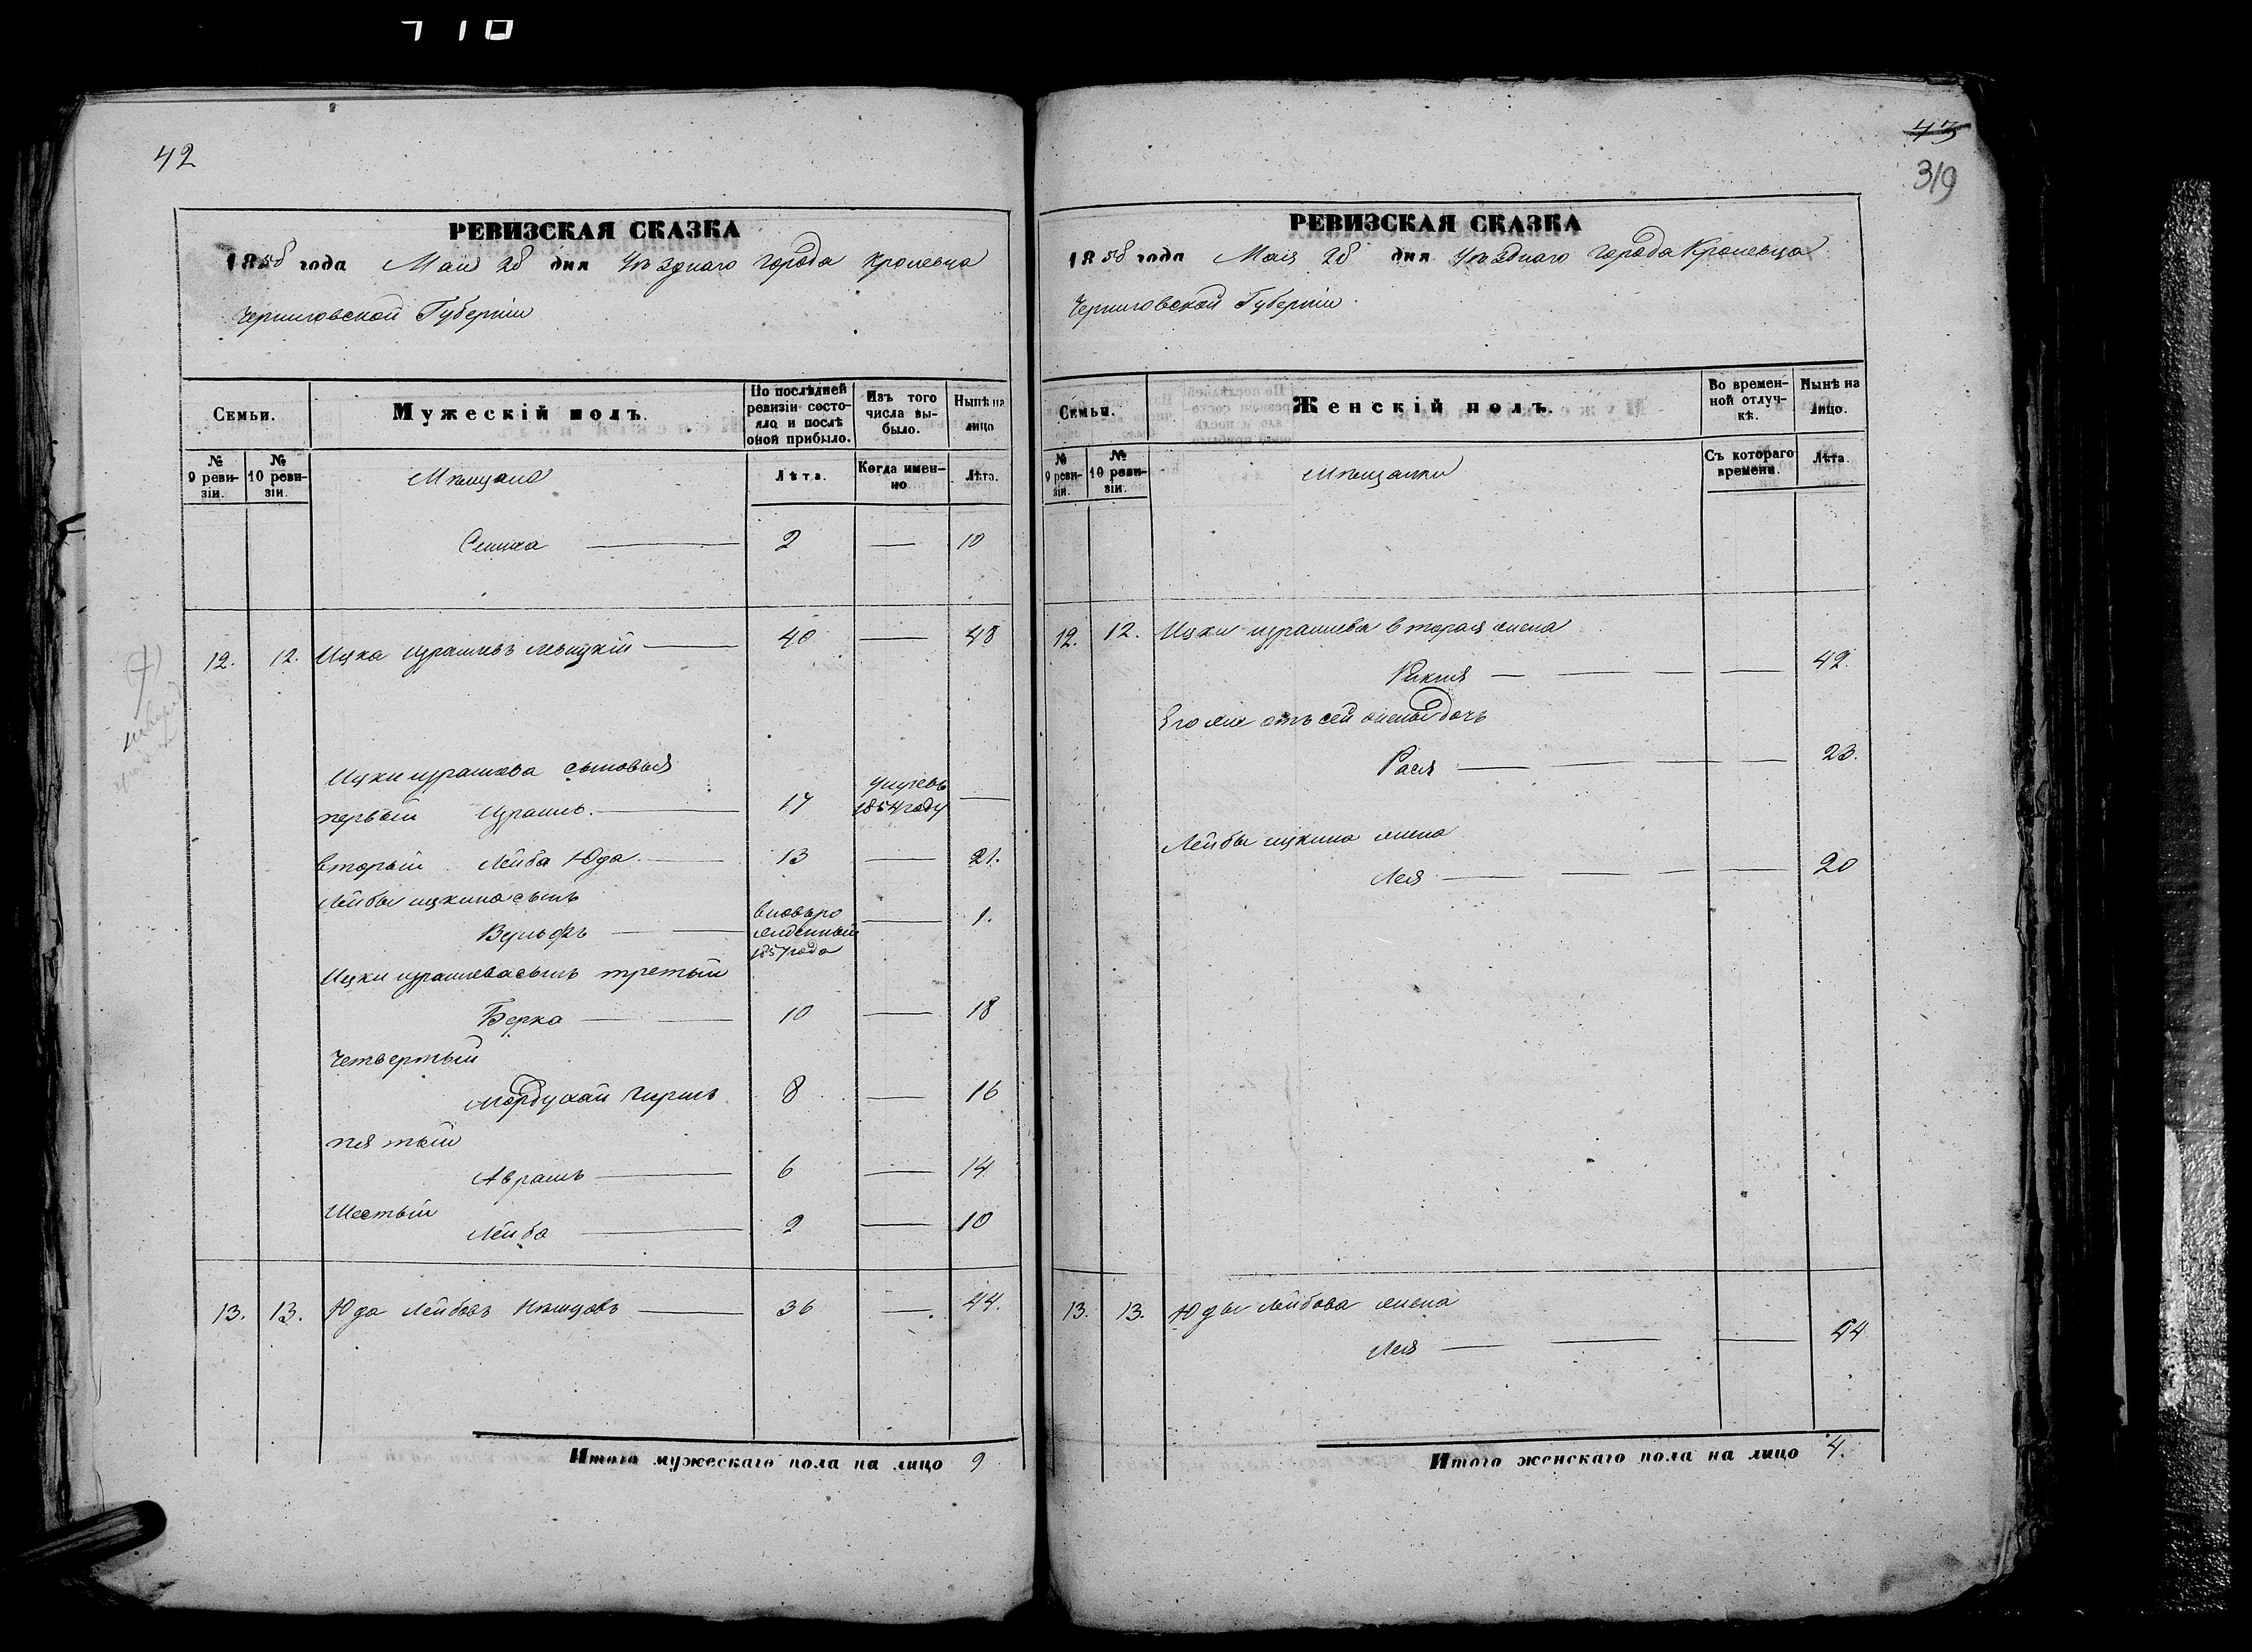 42
РЕВИЗСКАЯ СКАЗКА
1858 года Мая 26 дня Уѣзднаго города Кролевца
Черниговской Губерніи
Семьи.
Мужескій полъ.
По послѣдней ревизіи состояло и послѣ оной прибыло.
Изъ того числа выбыло.
Нынѣ на лицо
№ 9 ревизіи.
№ 10 ревизіи.
Мѣщане
Лѣта.
Когда именно
Лѣта.
2 — 10
12. 12. Ицка Израилевъ Левицкій — 40 — 48
Ицки Израилева сыновья
первый Израиль. — 17 умеръ 1854 году —
вторый Лейба Юда — 13 — 21.
Лейбы Ицкина сынъ
Вульфъ — вновьрожденный 1857 года — 1.
Ицки Израилева сынъ третьій
Берка — 10 — 18
Четвертый
Мордухай Гиршъ 8 — 16
пятый
Абрамъ — 6 — 14
Шестый
Лейба — 2 — 10
13. 13. Юда Лейбовъ — 36 — 44.
Итого мужескаго пола на лицо 9
43
319
РЕВИЗСКАЯ СКАЗКА
1858 года Мая 26 дня Уѣзднаго города Кролевца
Черниговской Губерніи
Семьи.
Женскій полъ.
Во временной отлучкѣ.
Нынѣ на лицо.
№ 9 ревизіи.
№ 10 ревизіи.
Мѣщанки
Съ котораго времени.
Лѣта.
12. 12. Ицки Израилева вторая жена
— — — — 42.
Его же отъ сей жены дочь
Рася — — — — 23.
Лейбы Ицкина жена
Лея — — — — 20
13. 13. Юды Лейбова жена
Лея — — — 44
Итого женскаго пола на лицо 4.